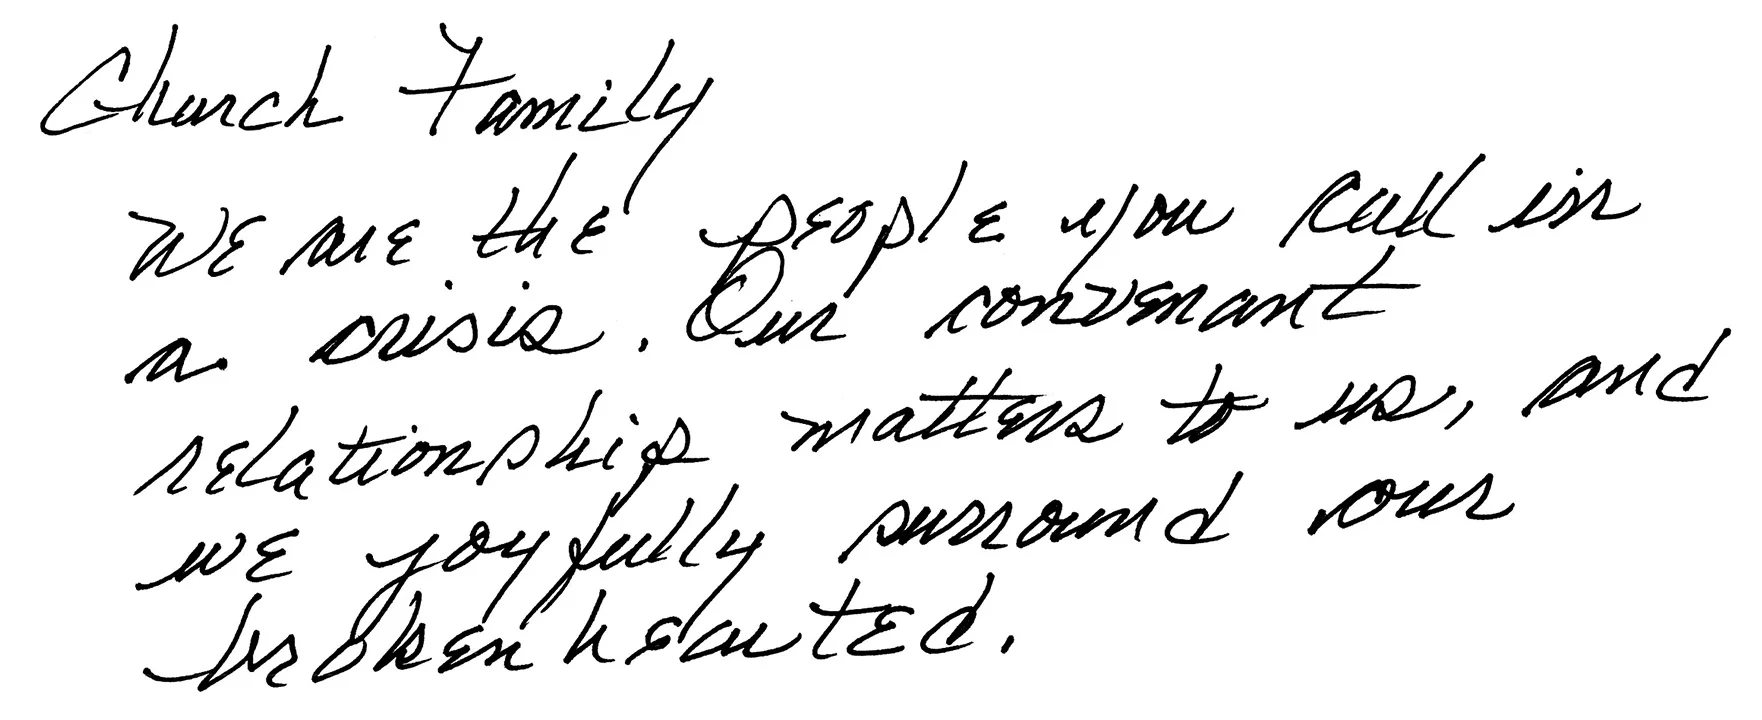 Church Family
We are the people you call in
a crisis. Our convenant
relationship matters to us, and
we joyfully surround our
brokenhearted.